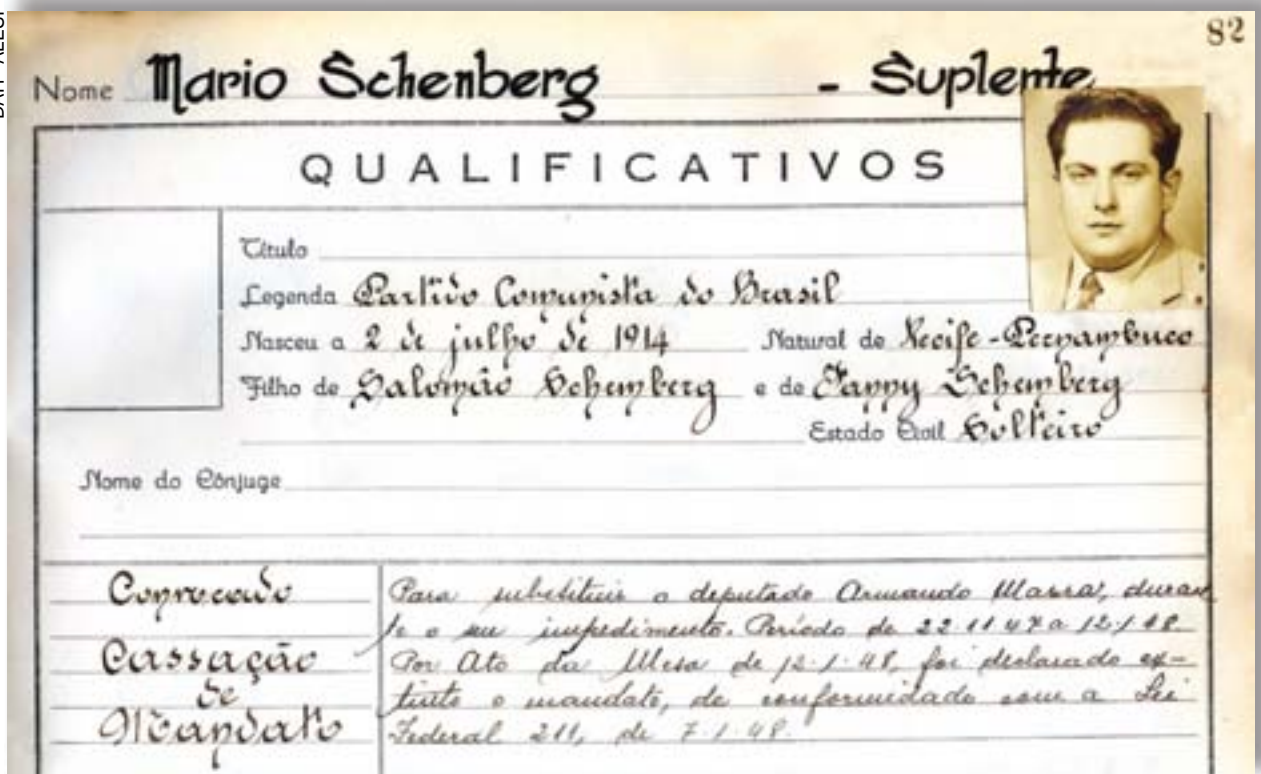 82
Nome Mario Schenberg - Suplente
QUALIFICATIVOS
Título
Legenda Partido Comunista do Brasil
Nasceu a 2 de julho de 1914 Natural de Recife - Pernambuco
Filho de Salomão Schemberg e de Fanny Schemberg
Estado Civil Solteiro
Nome do Cônjuge
Convocado
Para substituir o deputado Armando Mazza, duran
te o seu impedimento. Período de 22.11.47 a 12.1.48
Cassação
de
Mandato
Por Ato da Mesa de 12.1.48, foi declarado ex-
tinto o mandato, de conformidade com a Lei
Federal 211, de 7.1.48.